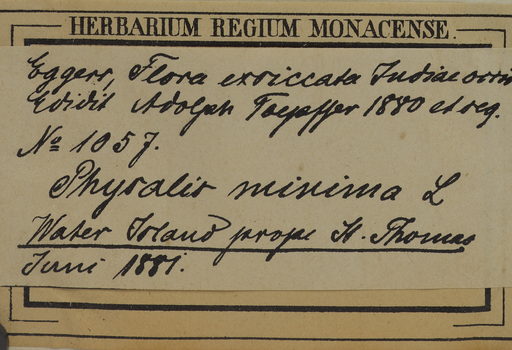 HERBARIUM REGIUM MONACENSE.
Eggers, Flora exsiccata Indiae occid
Edidit Adolph Toepffer 1880 et seq.
No 1057.
Physalis minima L
Water Island prope St. Thomas
Juni 1881.